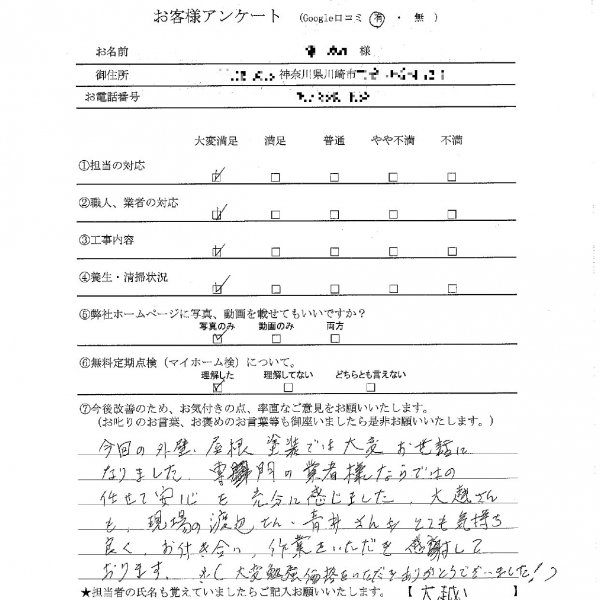 お客様アンケート (Google口コミ 有 ・ 無 )
お名前 様
御住所 神奈川県川崎市
お電話番号
大変満足 満足 普通 やや不満 不満
①担当の対応
②職人、業者の対応
③工事内容
④養生・清掃状況
⑤弊社ホームページに写真、動画を載せてもいいですか？
写真のみ 動画のみ 両方
⑥無料定期点検（マイホーム検）について。
理解した 理解してない どちらとも言えない
⑦今後改善のため、お気付きの点、率直なご意見をお願いいたします。
(お叱りのお言葉、お褒めのお言葉等も御座いましたら是非お願いいたします。)
今回の外壁、屋根塗装では大変お世話に
なりました。専門の業者様ならではの
任せて安心を充分に感じました。大越さん
も、現場の渡辺さん・青井さんもとても気持ち
良く、お付き合い、作業をいただき感謝して
おります。 大変勉強価格をいただきありがとうございました！
★担当者の氏名も覚えていましたらご記入お願いいたします。 【 大越 】